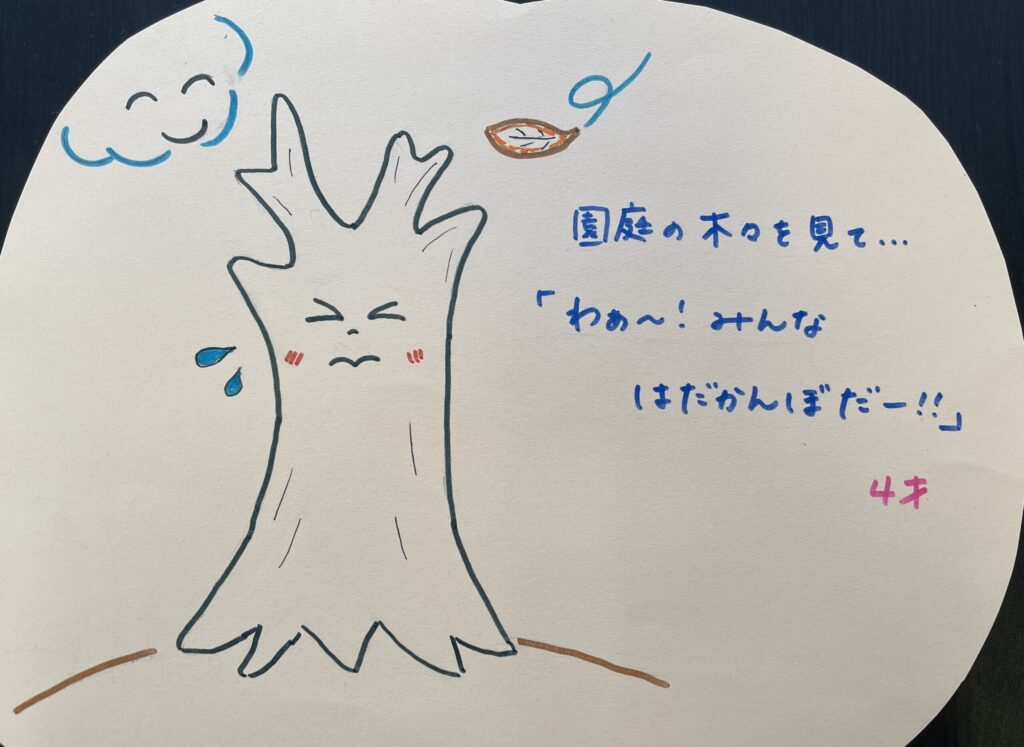 園庭の木々を見て...
「わぁ〜！みんな
はだかんぼだー!!」
4才